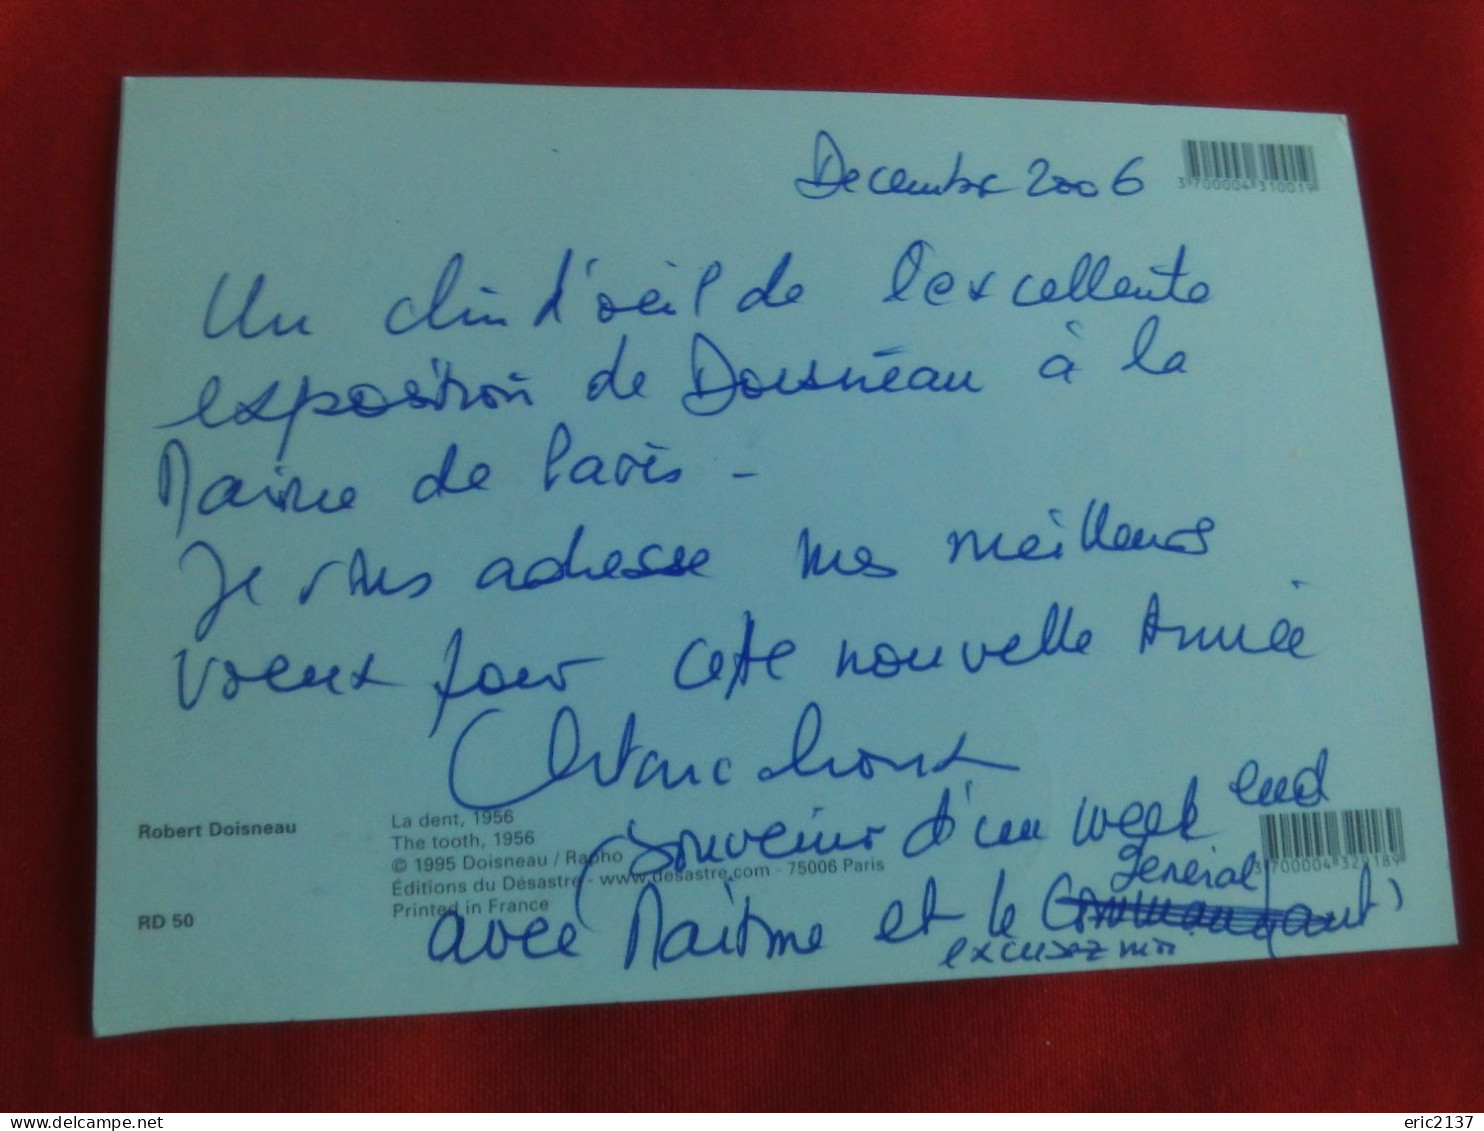 Decembre 2006
3 700004 310019
Un clin d'oeil de l'excellente
exposition de Doisneau à la
Mairie de Paris -
Je vous adresse mes meilleurs
voeux pour cette nouvelle Année
(souvenir d'un week end
avec Maitme et le Commandant)
général
excusez moi
Robert Doisneau
RD 50
La dent, 1956
The tooth, 1956
© 1995 Doisneau / Rapho
Éditions du Désastre - www.desastre.com - 75006 Paris
Printed in France
3 700004 329189
eric2137